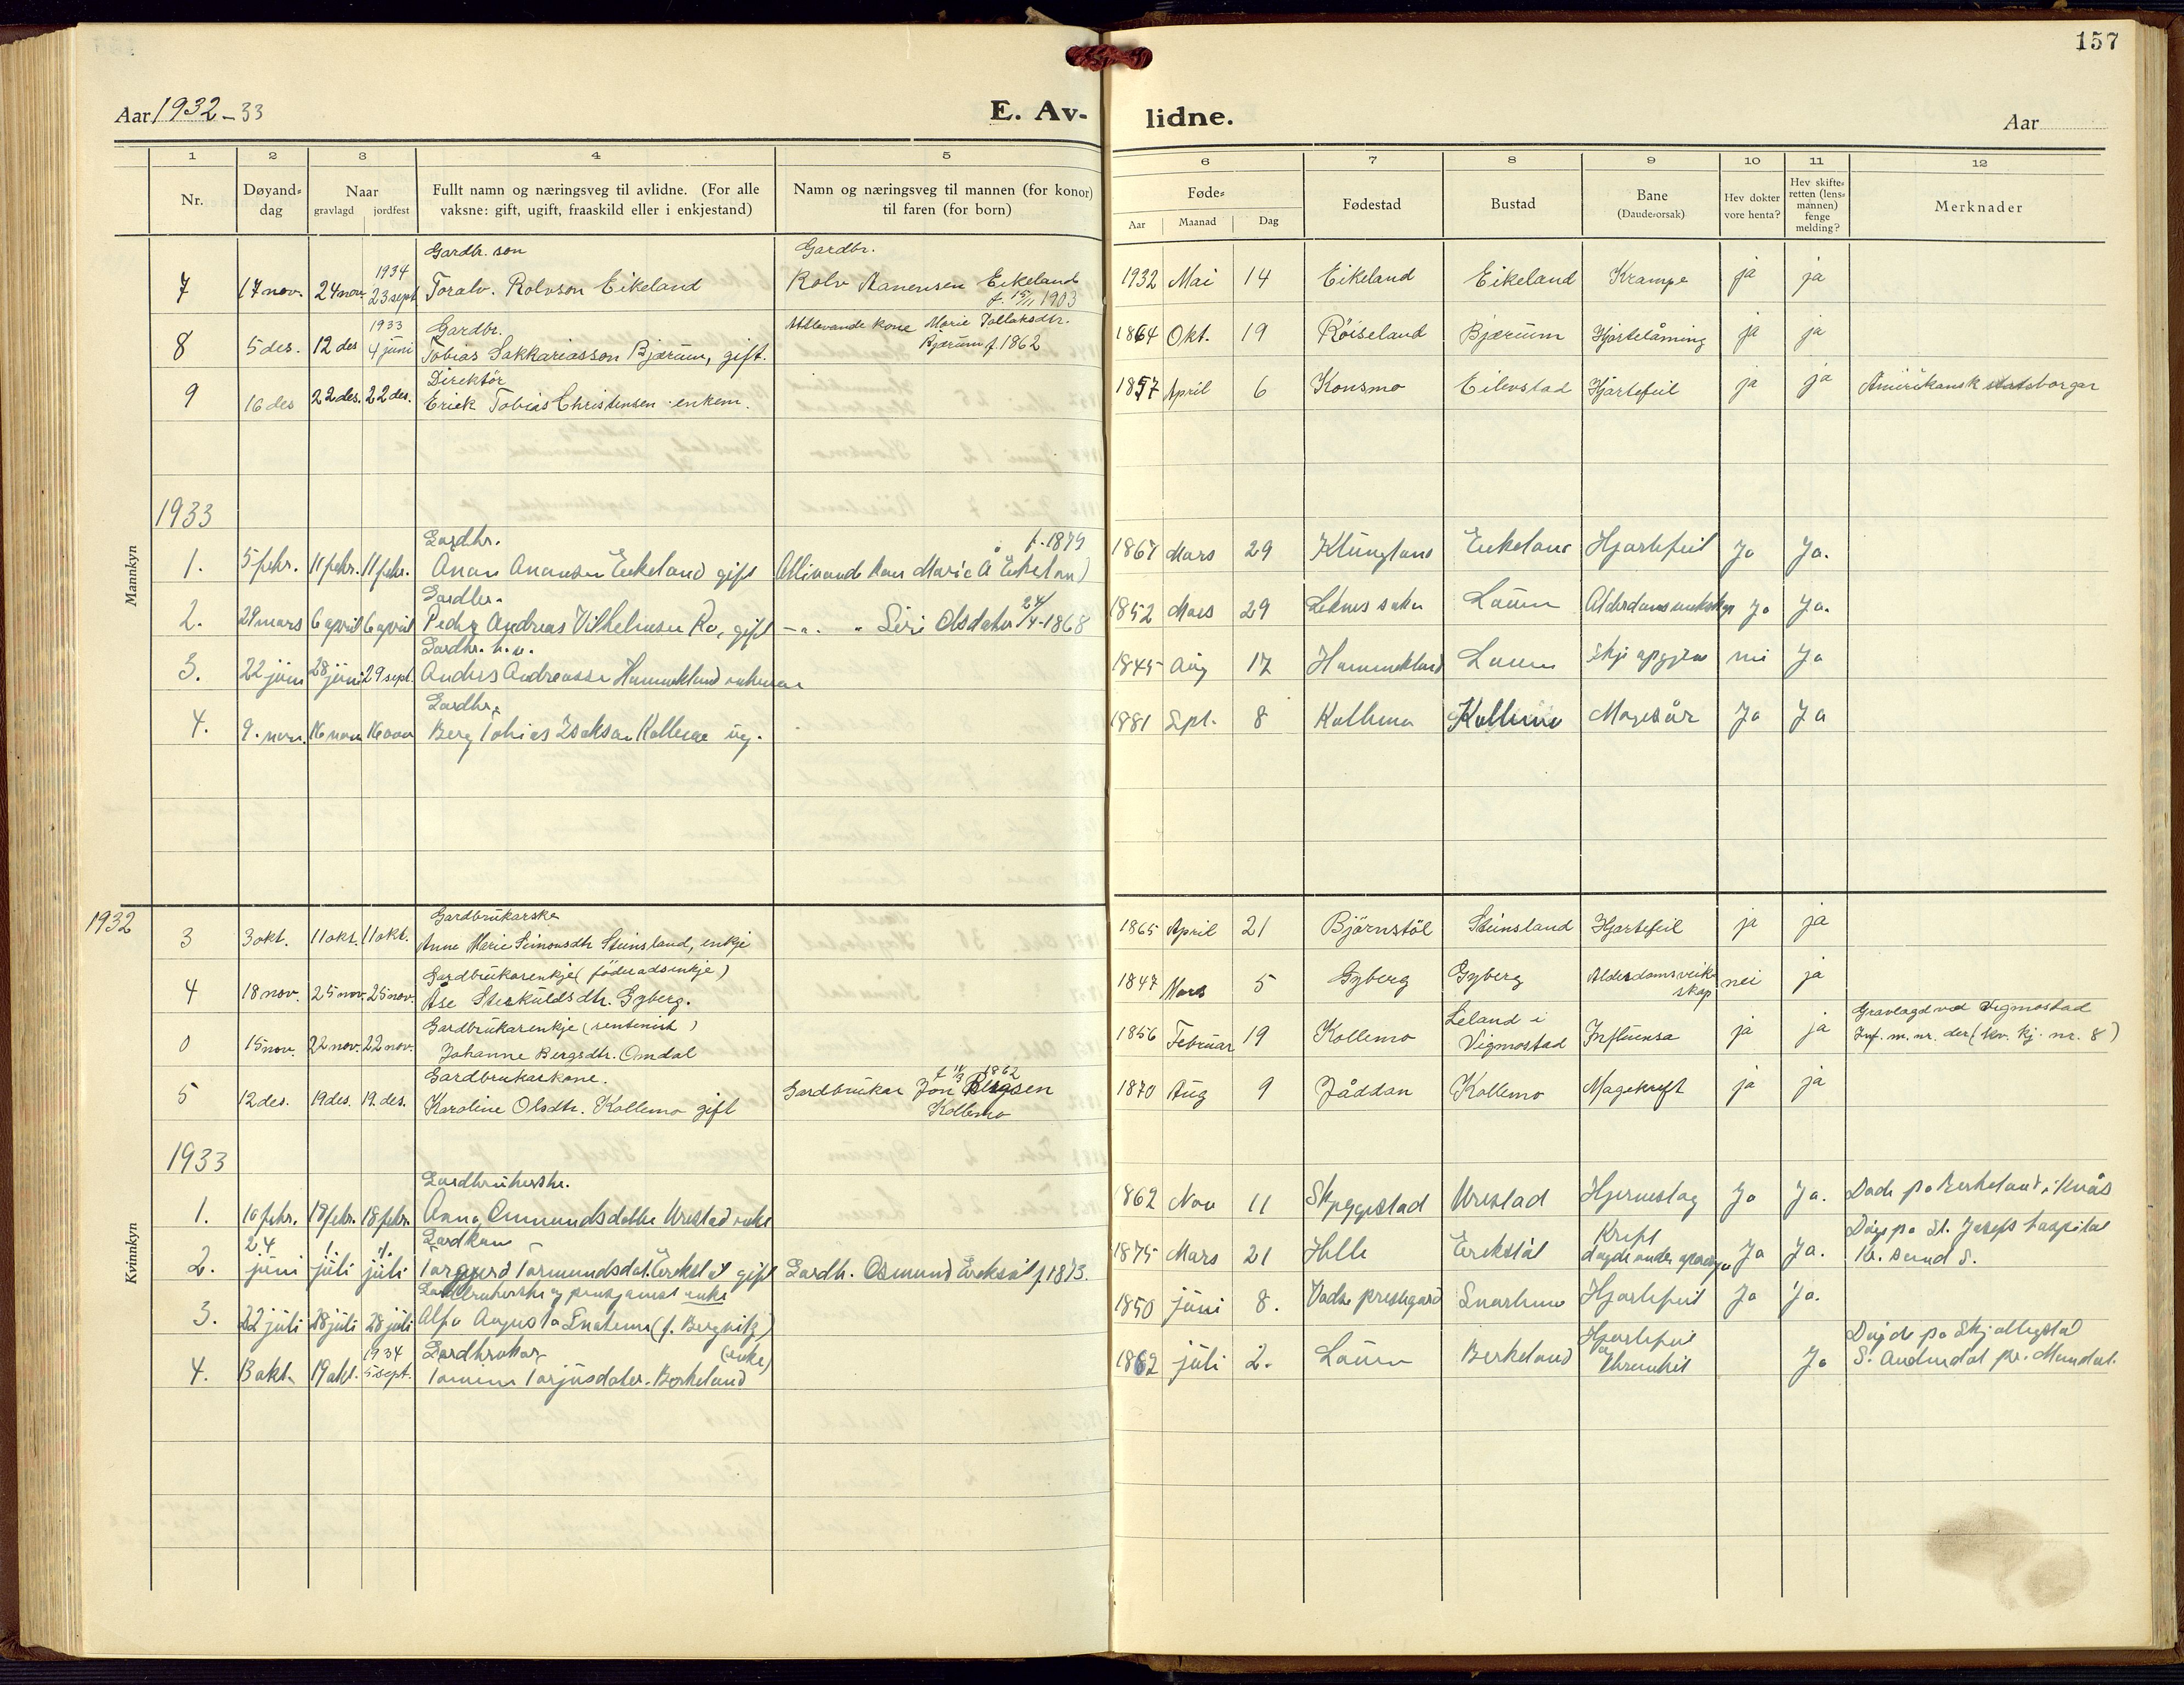 157
Aar 1932-33
E. Av-
lidne.
Aar
1 2 3 4 5
6 7 8 9 10 11 12
Nr.
Døyand-
dag
Naar
gravlagd jordfest
Fullt namn og næringsveg til avlidne. (For alle
vaksne: gift, ugift, fraaskild eller i enkjestand)
Namn og næringsveg til mannen (for konor)
til faren (for born)
Føde-
Aar Maanad Dag
Fødestad
Bustad
Bane
(Daudeorsak)
Hev dokter
vore henta?
Hev skifte-
retten (lens-
mannen)
fenge
melding?
Merknader
Mannkyn
Gardbr. son Gardbr.
1934
7 17 nov. 24 nov. 23 sept Toralv. Rolvson Eikeland Rolv Aanensen Eikeland 1932 Mai 14 Eikeland Eikeland Krampe ja ja
f. 15/11 1903
1933 Gardbr. Attlevande kone Marie Tallaksdtr.
8 5 des. 12 des 4 juni Tobias Sakkariasson Bjærum, gift. Bjærum f. 1862 1864 Okt. 19 Röiseland Bjærum Hjartelåming ja ja
Direktör
9 16 des 22 des. 22 des. Erick Tobias Christensen enkem. 1857 April 6 Konsmo Eilevstad Hjartefeil ja ja Amerikansk statsborgar
1933
Gardbr. f. 1879
1. 5 febr. 11 febr. 11 febr. Anan Anansen Eikeland gift Marie A Eikeland 1867 Mars 29 Klungland Eikeland Hjartefeil Ja Ja.
Gardbr. 24/4-1868
2. 29 mars 6 april 6 april Peder Andreas Vilhelmsen Ro, gift - " - " Siri Olsdater 1852 Mars 29 Laudn Ja Ja.
Gardbr.
3. 22 juni 28 juni 29 sept. Anders Andreassen Hummeland 1845 Aug 17 Hummeland nei Ja
Gardbr.
4. 9. nov. 16 nov 16 nov Berg Tobias Isaksen Kollemo ug. 1881 Sept. 8 Kollemo Kollemo Magesår Ja Ja
1932
Kvinnkyn
Gardbrukarske
3 3 okt. 11 okt. 11 okt. Anne Marie Simonsdtr Steinsland, enkje 1865 April 21 Björnstöl Steinsland Hjartefeil ja ja
Gardbrukarenkje (föderadsenkje)
4 18 nov. 25 nov. 25 nov. Åse Sterkuldsdtr. Gyberg. 1847 Mars 5 Gyberg Gyberg Alderdomsveik-
skap nei ja
Gardbrukarenkje (rentenist) Leland i Gravlagd ved Vigmostad
0 15 nov. 22 nov. 22 nov. Johanne Bergsdtr. Omdal 1856 Februar 19 Kollemo Vigmostad Influensa ja ja Inf. m. nr. der (kv. kj. nr. 8)
Gardbrukarkone. 1862
5 12 des. 19 des. 19. des. Karoline Olsdtr. Kollemo gift Gardbrukar Jon Bergsen
Kollemo 1870 Aug 9 Jåddan Kollemo Magekreft ja ja
1933
1. 10 febr. 18 febr. 18 febr. Anna Omundsdotter Urestad enke 1862 Nov 11 Skjeggestad Urestad Hjerneslag Ja Ja.
Gardkone Kreft Døyde på St. Josefs hospital
2. 24 juni 1. juli 1. juli Torgjerd Tormundsdat. Ereksdal gift Gardb. Osmund Ereksdal f. 1873. 1875 Mars 21 Helle Ja Ja. Kr. sand S.
3. 22 juli 28 juli 28 juli Augusta Snartemo (f. Bergwitz) 1850 juni 8. Vadse prestegard Snartemo Hjartefeil Ja Ja.
Gardbrukar (enke) Hjartefeil
1934
4. 13 okt. 19 okt. 5 sept. Tarjusdater. Berkeland 1862 juli 2. Laudn Berkeland Ja
S. Audnedal pr. Mandal.